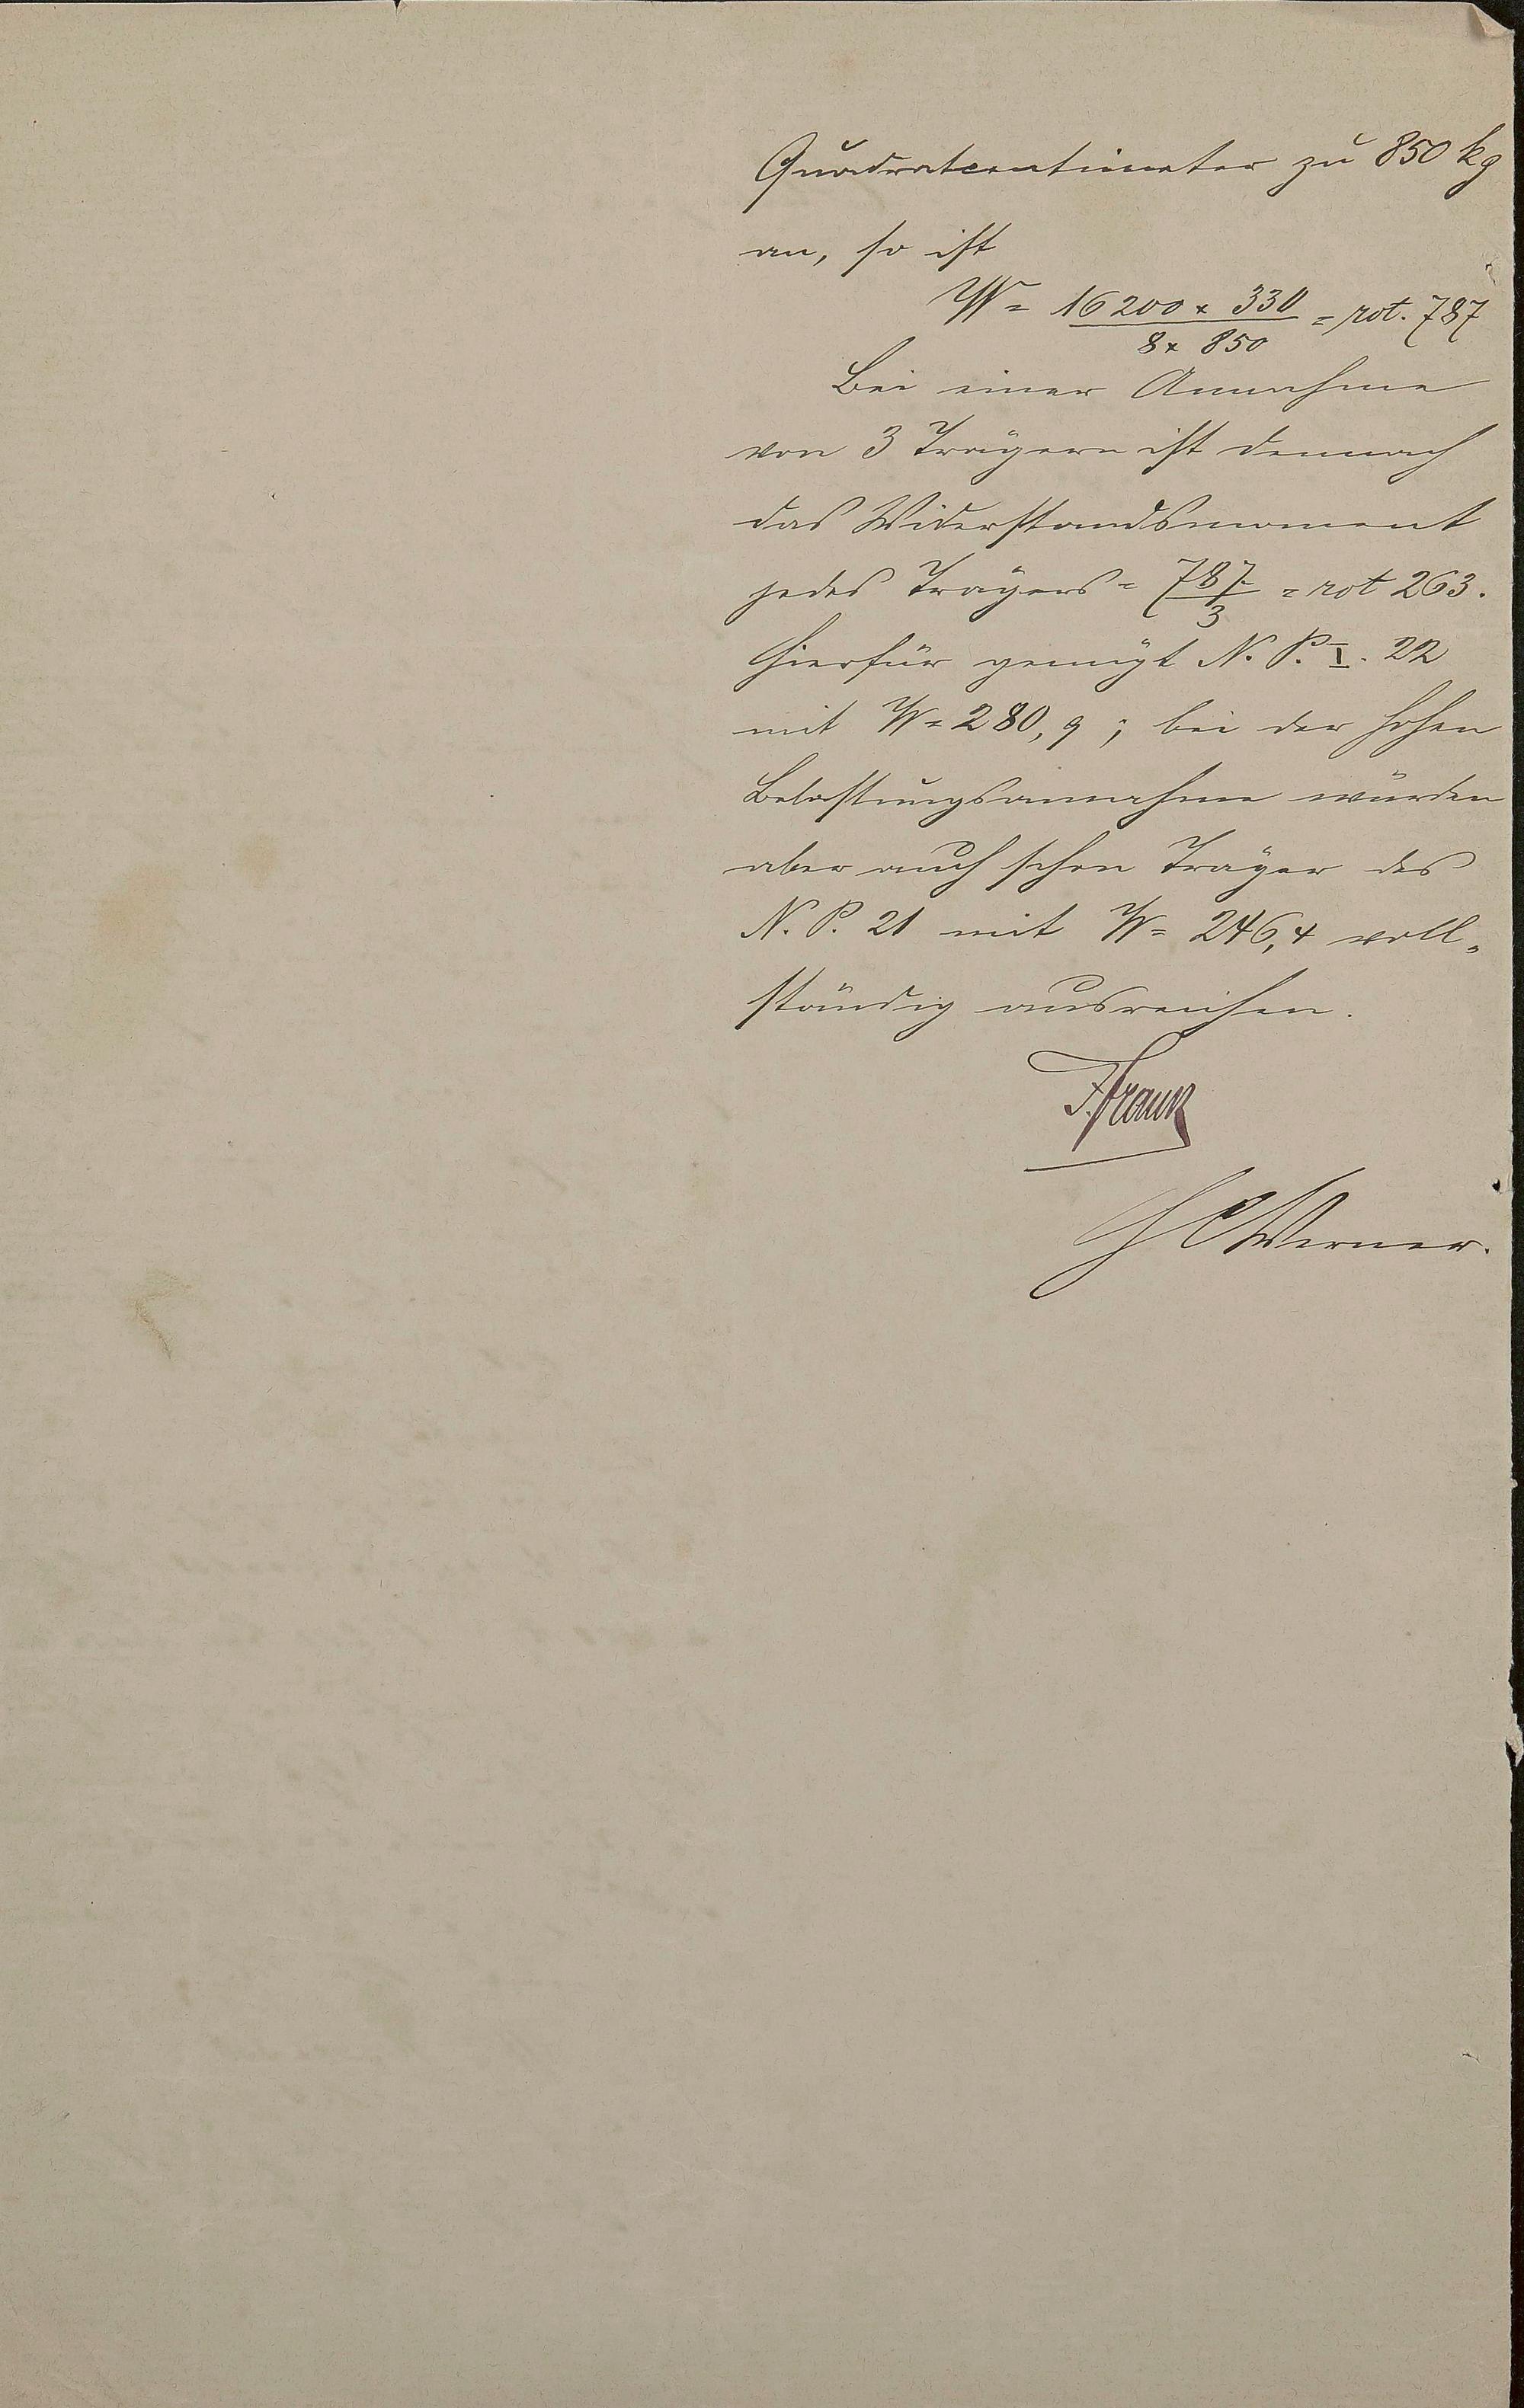 Quadratcentimeter zu 850 kg
an, so ist
W = 16200 x 330 / 8 x 850 = rot. 787
Bei einer Annahme
von 3 Trägern ist demnach
das Widerstandsmoment
jedes Trägers = 787 / 3 = rot 263.
Hierfür genügt N. P. I. 22
mit W = 280,9; bei der hohen
Belastungsannahme würden
aber auch schon Träger des
N. P. 21 mit W = 246,4 voll-
ständig ausreichen.
Werner.